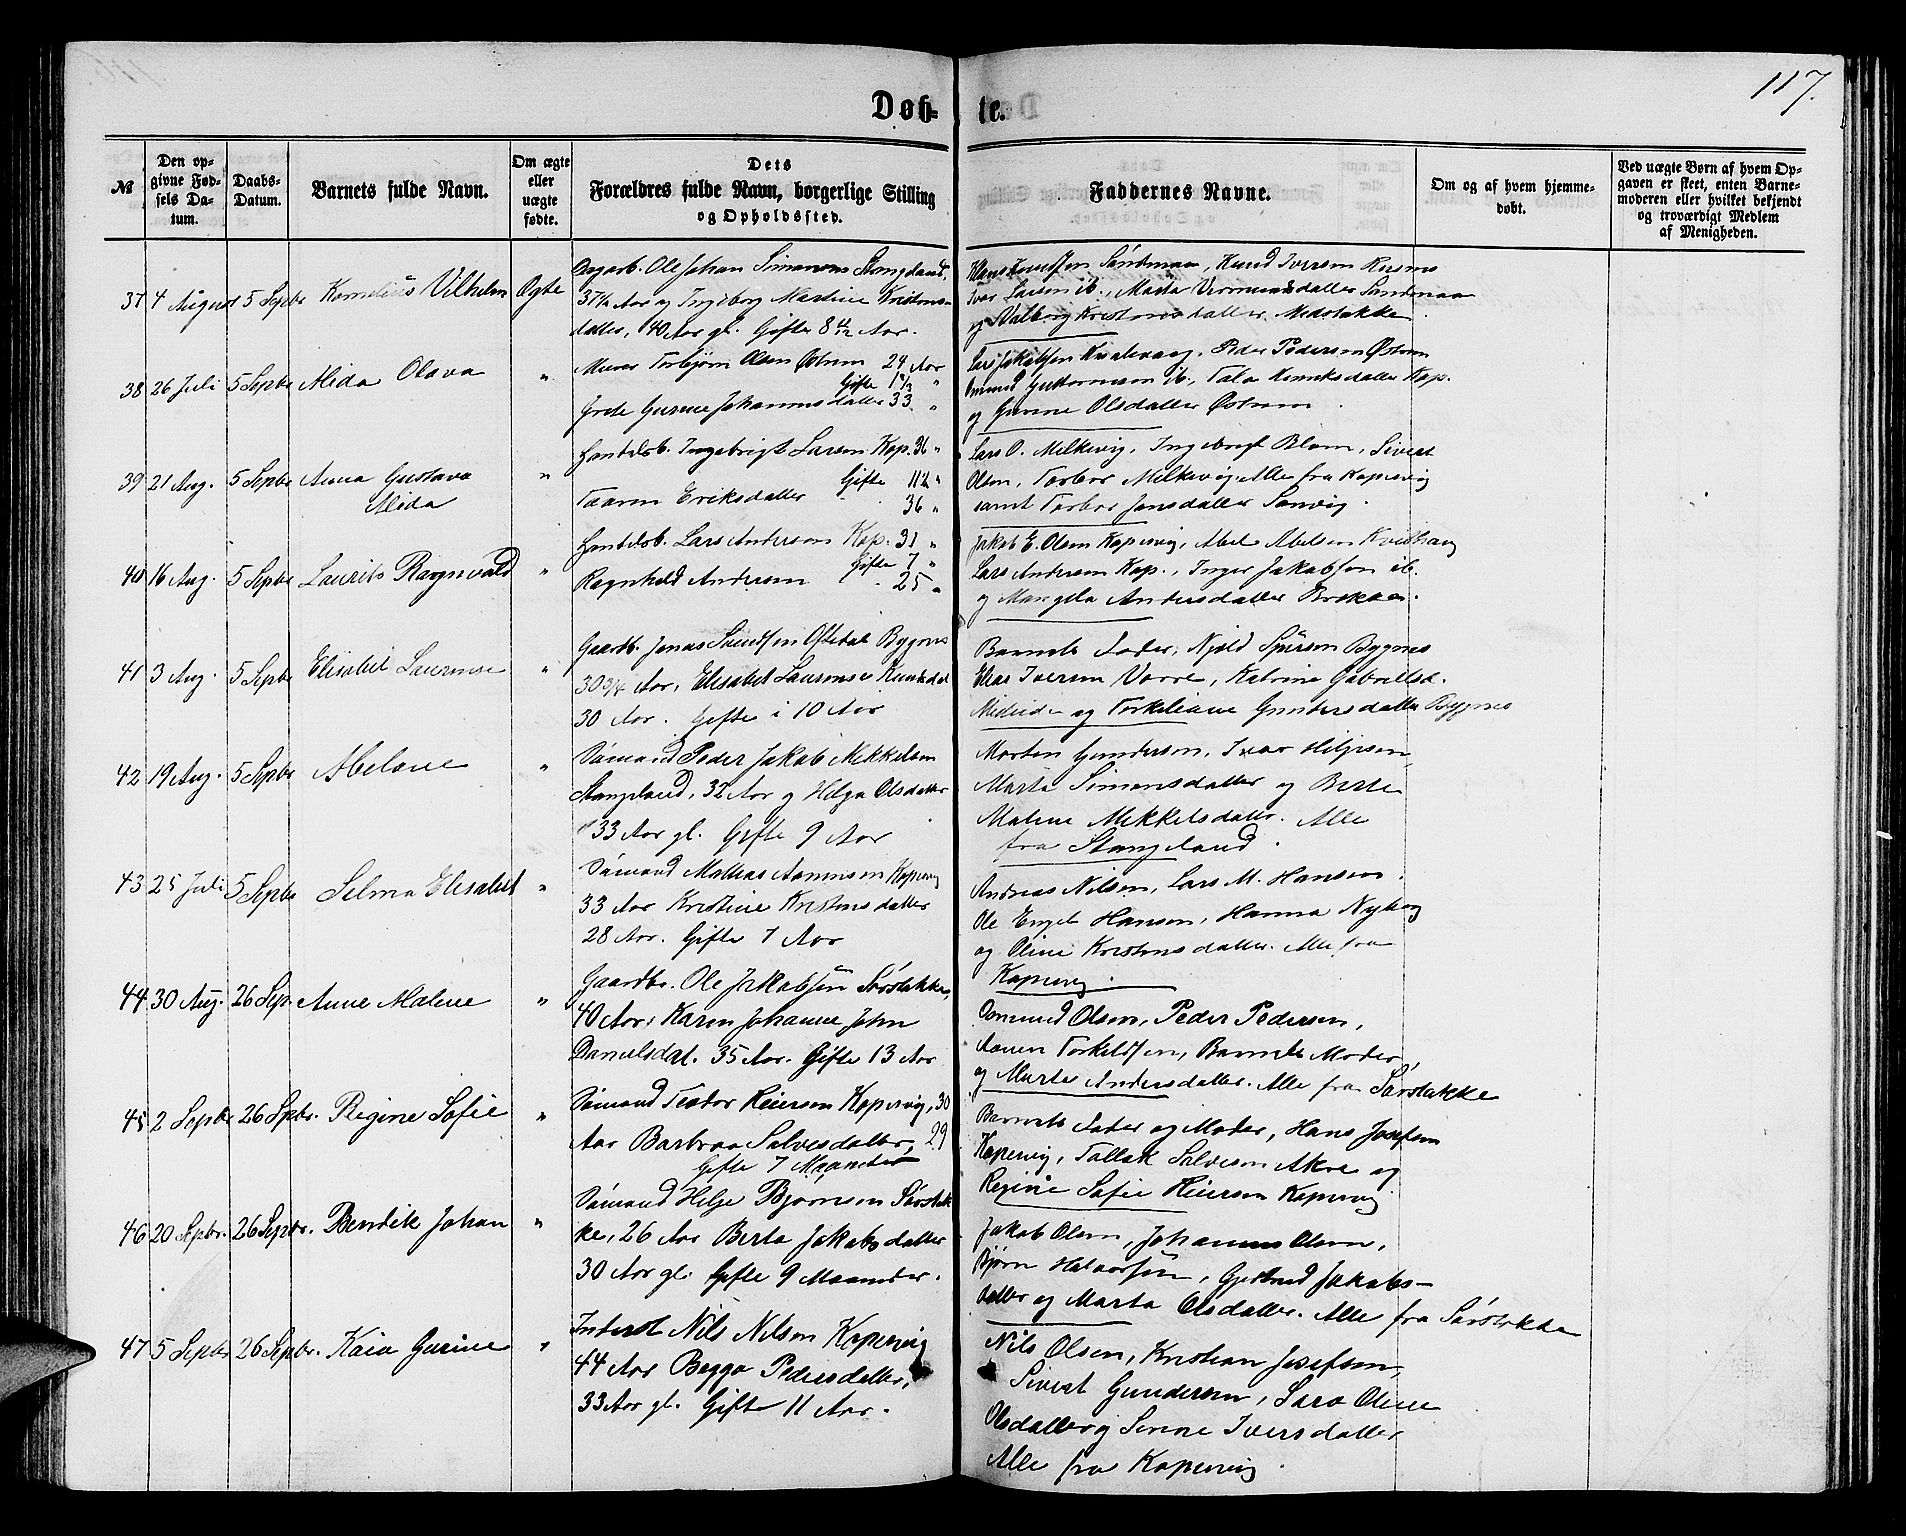 117.
Døb-
te.
№
Den op-
givne Fød-
sels Da-
tum.
Daabs-
Datum.
Barnets fulde Navn.
Om ægte
eller
uægte
fødte.
Dets
Forældres fulde Navn, borgerlige Stilling
og Opholdssted.
Faddernes Navne.
Om og af hvem hjemme-
døbt.
Ved uægte Børn af hvem Op-
gaven er skeet, enten Barne-
moderen eller hvilket bekjendt
og troværdigt Medlem
af Menigheden.
37 4 August 5 Sepbr Kornelius Vilhelm Ægte
Ole Johan Simonsen Stangeland,
37½ Aar og Ingeborg Martine Kristens-
datter, 40 Aar gl. Gifte 8 4/12 Aar.
Hans Knudsen Sandmaa, Knud Iversen
Iver Larsen ib., Marta datter Sandmaa
og Valborg Kristensdatter Medstokke
38 26 Juli 5 Sepbr Alida Olava "
Murer Torbjørn Olsen Østrem 24 Aar
Gifte 1 "
Grete Gurine Johannesdatter 33 "
Lars Jakobsen Kvalevaag, Peder Pedersen Østrem
Guttormsen ib., Tala Henriksdatter Kop.
og Gurine Olsdatter Østrem.
39 21 Aug. 5 Sepbr Anna Gustava
Alida "
Handelsb. Ingebrigt Larsen Kop. 36 "
Gifte 11½ "
Taaren Eriksdatter 36 "
Lars O. Milkevig, Ingebrigt Blom, Sivert
Olsen, Torbor Milkevig. Alle fra Kopervig
samt Torbor Jonsdatter Sanvig.
40 16 Aug. 5 Sepbr Laurits Ragnvald "
Handelsb. Lars Andersen Kop. 31 "
Gifte 7 "
Ragnhild Andersen 25 "
Jakob E. Olsen Kopervig, Abel Abelsen Kvilhaug
Lars Andersen Kop., Inger Jakobsen ib.
og Mangela Andersdatter
41 3 Aug. 5 Sepbr Elisabet Laurense "
Gaardb. Jonas Svendsen Oftedal Bygnes
30 3/4 Aar, Elisabet Laurense Knudsdat
30 Aar. Gifte i 10 Aar
Barnets Fader, Njeld Bygnes
Elias Iversen Vorre, Katrine Gabrielsd.
og Torkeliane Gundersdatter Bygnes
42 19 Aug. 5 Sepbr Abelone "
Sømand Peder Jakob Mikkelsen
Stangeland, 32 Aar og Helga Olsdatter
33 Aar gl. Gifte 9 Aar
Morten Gundersen, Ivar Hiljesen,
Marta Simonsdatter og Berte
Malene Mikkelsdatter. Alle
fra Stangeland.
43 25 Juli 5 Sepbr Selma Elisabet "
Sømand Mathias Aamunsen Kopervig
33 Aar Kristine Kristensdatter
28 Aar. Gifte 7 Aar
Andreas Nilsen, Lars M. Hansen,
Ole Engel Hansen, Hanna Nyborg
og Oline Kristensdatter. Alle fra
Kopervig.
44 30 Aug. 26 Sep. Anne Malene "
Gaardbr. Ole Jakobsen Sørstokke,
40 Aar, Karen Johanne John
Danielsdat. 35 Aar. Gifte 13 Aar
Osmund Olsen, Peder Pedersen,
Aanen Torkildsen, Barnets Moder,
og Marta Andersdatter. Alle fra Sørstokke
45 2 Sepbr 26 Sepbr. Regine Sofie "
Sømand Teodor Reiersen Kopervig, 30
Aar Barbraa Salvesdatter, 29
Gifte 7 Maaneder
Barnets Fader og Moder, Hans Josefsen
Kopervig, Tallak Salvesen Akre og
Regine Sofie Reiersen Kopervig.
46 20 Sepbr. 26 Sepbr. Bendik Johan "
Sømand Helje Bjørnsen Sørstok
ke, 26 Aar Berta Jakobsdatter
30 Aar gl. Gifte 9 Maaneder.
Jakob Olsen, Johannes Olsen,
Bjørn Halvorsen, Gjertrud Jakobs-
datter og Marta Olsdatter. Alle fra Sørstokke
47 5 Sepbr 26 Sepbr. Kaia Gurine "
Inderst Nils Nilsen Kopervig
44 Aar Begga Pedersdatter,
33 Aar gl. Gifte 11 Aar.
Nils Olsen, Kristian Josefsen,
Sivert Gundersen, Sara Oline
Olsdatter og Serine Iversdatter
Alle fra Kopervig.